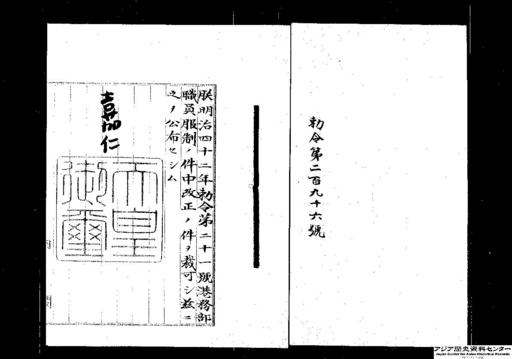 勅令第二百九十六號
朕明治四十二年勅令第二十一號港務部
職員服制ノ件中改正ノ件ヲ裁可シ茲ニ
之ヲ公布セシム
嘉仁
天皇御璽
アジア歴史資料センター
Japan Center for Asian Historical Records